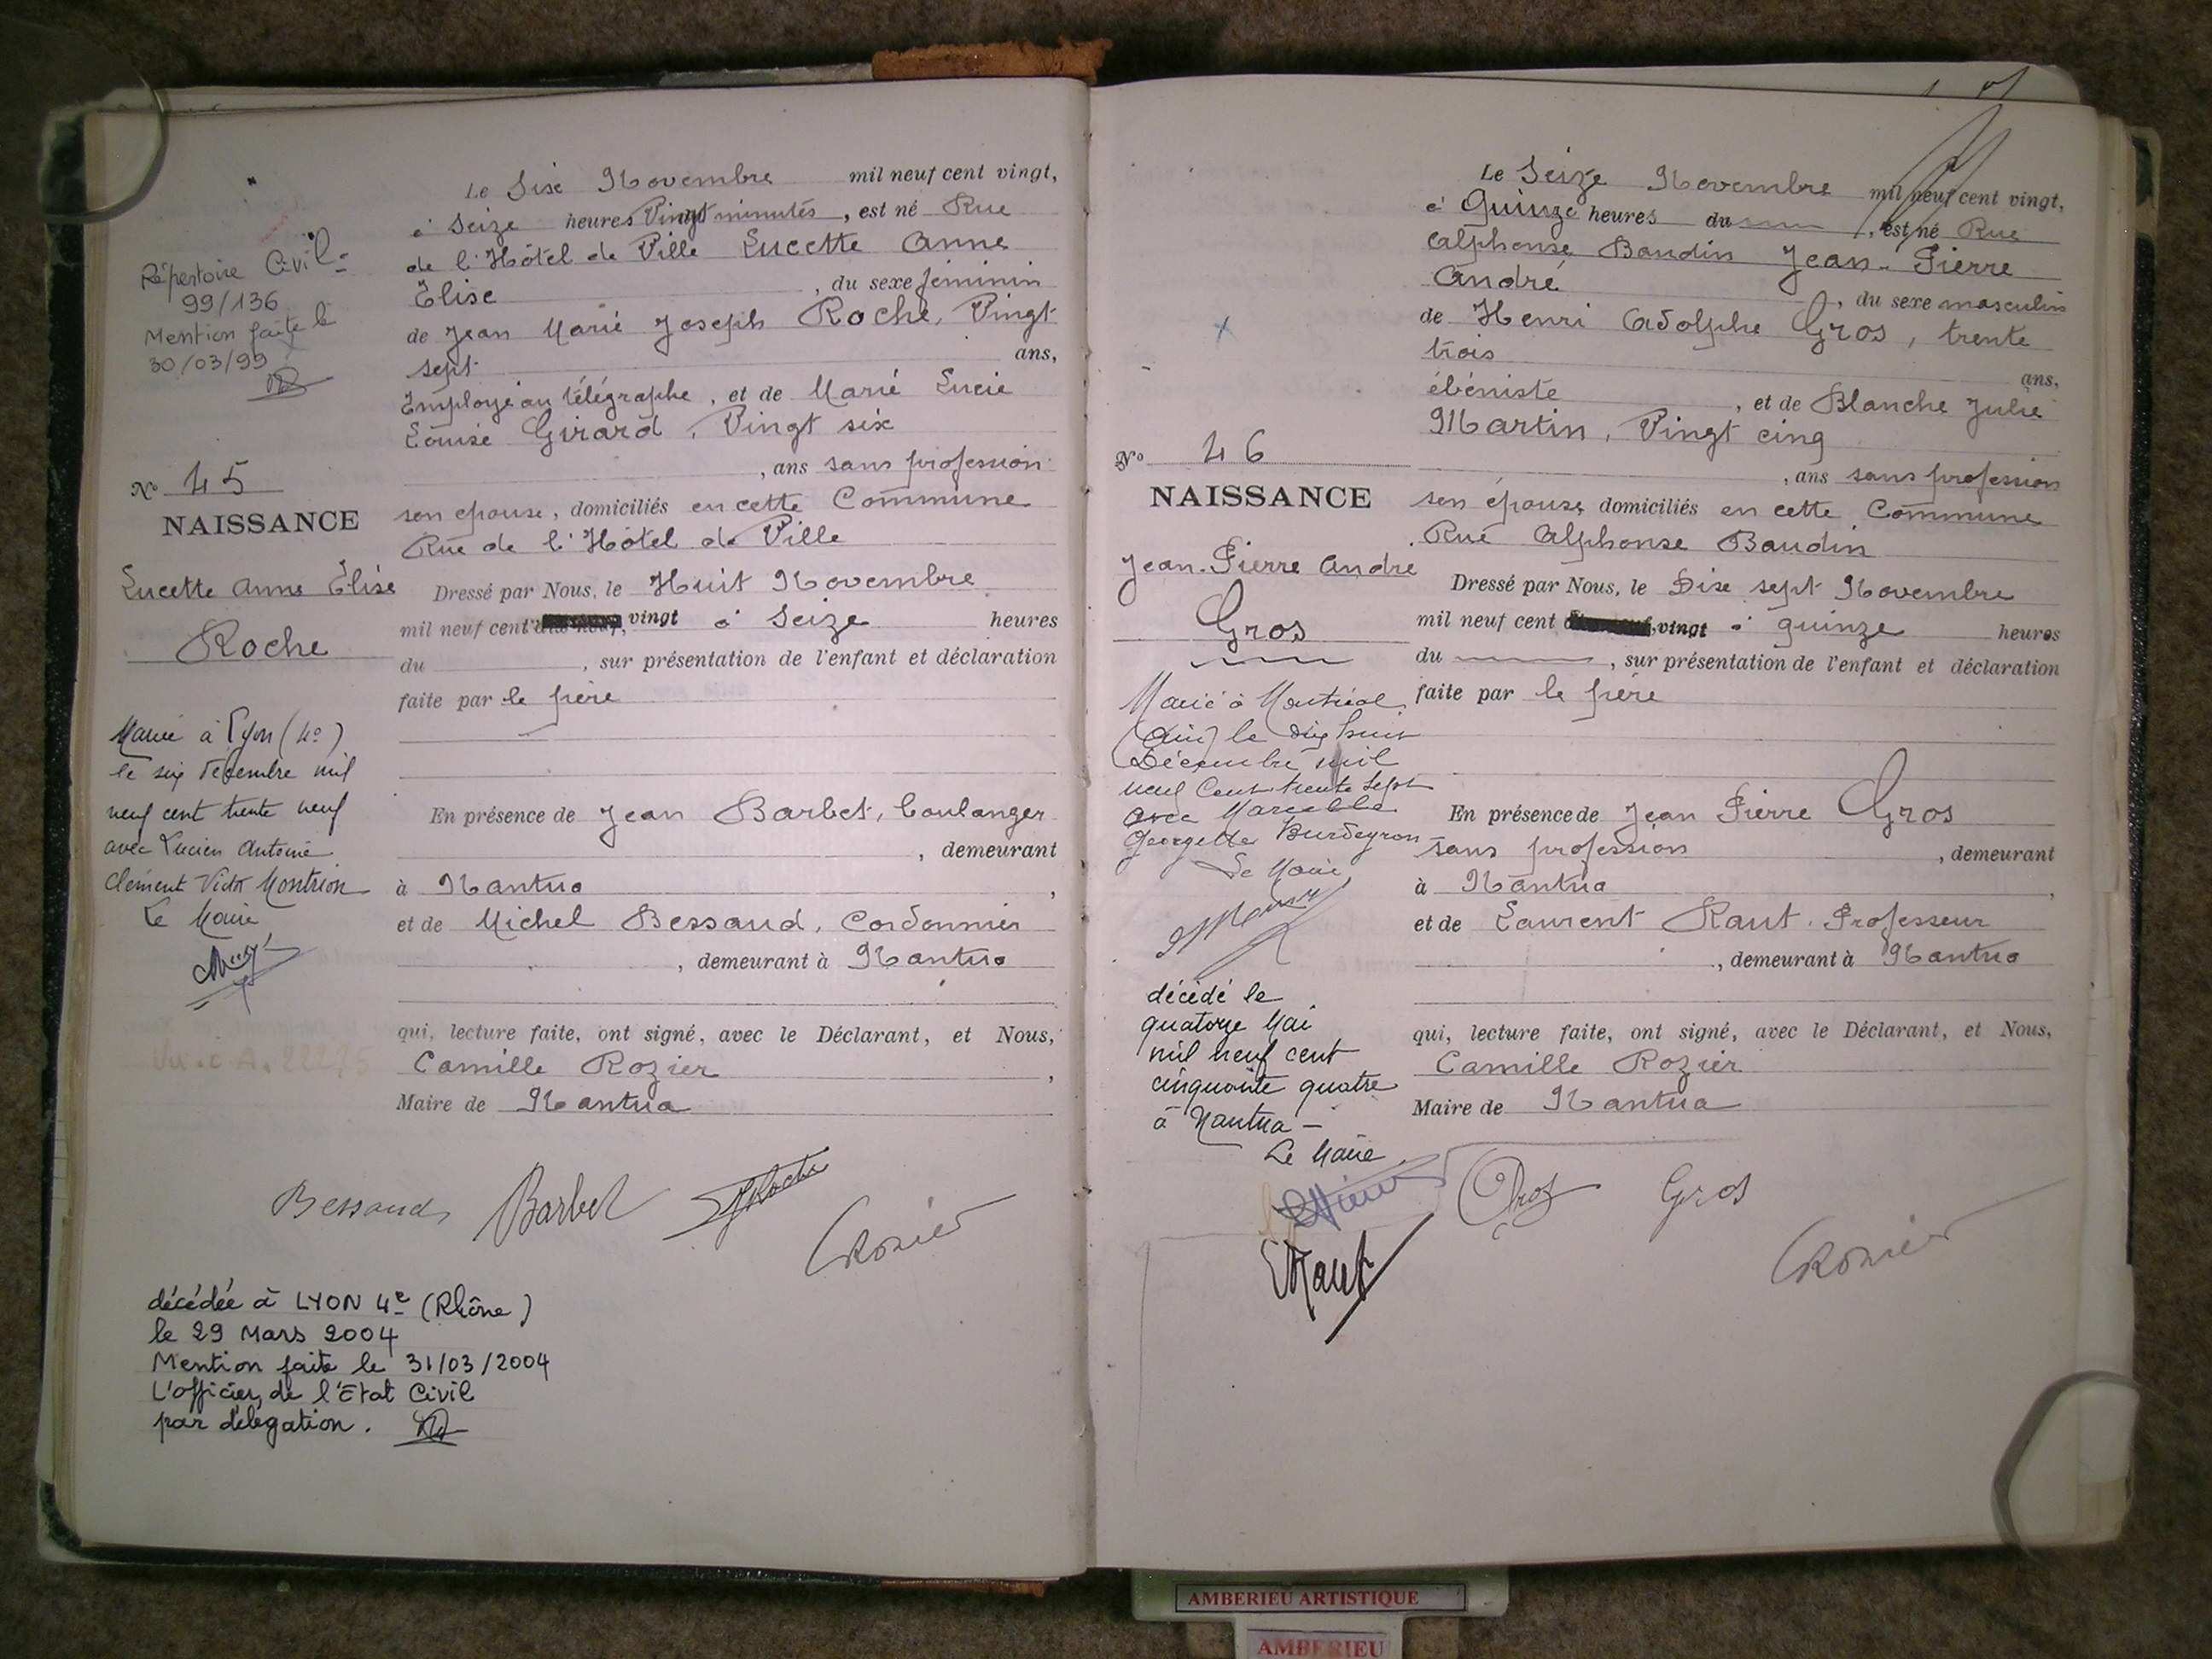 Répertoire Civil
99/136
Mention faite le
30/03/99
Nº 45
NAISSANCE
Lucette Anne Élise
Roche
Mariée à Lyon (4º)
le six décembre mil
neuf cent trente neuf
avec Lucien Antoine
Clément Victor Montrion
Le Maire
Le Six Novembre mil neuf cent vingt,
à Seize heures Vingt minutes, est né Rue
de l'Hôtel de Ville Lucette Anne
Élise, du sexe féminin
de Jean Marie Joseph Roche, Vingt
sept ans,
Employé au télégraphe, et de Marie Lucie
Louise Girard, Vingt six
, ans sans profession
son épouse, domiciliés en cette Commune
Rue de l'Hôtel de Ville
Dressé par Nous, le Huit Novembre
mil neuf cent vingt à Seize heures
du , sur présentation de l'enfant et déclaration
faite par le père
En présence de Jean Barbet, boulanger
, demeurant
à Nantua,
et de Michel Bessaud, Cordonnier
, demeurant à Nantua
qui, lecture faite, ont signé, avec le Déclarant, et Nous,
Camille Rozier,
Maire de Nantua
Bessaud Barbet Roche CRozier
décédée à LYON 4e (Rhône)
le 29 Mars 2004
Mention faite le 31/03/2004
L'officier de l'Etat Civil
par délégation.
Nº 46
NAISSANCE
Jean-Pierre André
Gros
Marié à Montréal
(Ain) le dix huit
Décembre mil
neuf Cent trente sept
avec Marcelle
Georgette Burdeyron
Le Maire
décédé le
quatorze Mai
mil neuf cent
cinquante quatre
à Nantua -
Le Maire
Le Seize Novembre mil neuf cent vingt,
à Quinze heures du , est né Rue
Alphonse Baudin Jean-Pierre
André, du sexe masculin
de Henri Adolphe Gros, trente
trois ans,
ébéniste, et de Blanche Julie
Martin, Vingt cinq
, ans sans profession
son épouse, domiciliés en cette Commune
Rue Alphonse Baudin
Dressé par Nous, le Dix sept Novembre
mil neuf cent vingt à quinze heures
du , sur présentation de l'enfant et déclaration
faite par le père
En présence de Jean Pierre Gros
sans profession, demeurant
à Nantua,
et de Laurent Raut. Professeur
, demeurant à Nantua
qui, lecture faite, ont signé, avec le Déclarant, et Nous,
Camille Rozier
Maire de Nantua
Gros Gros
Raut CRozier
AMBERIEU ARTISTIQUE
AMBERIEU